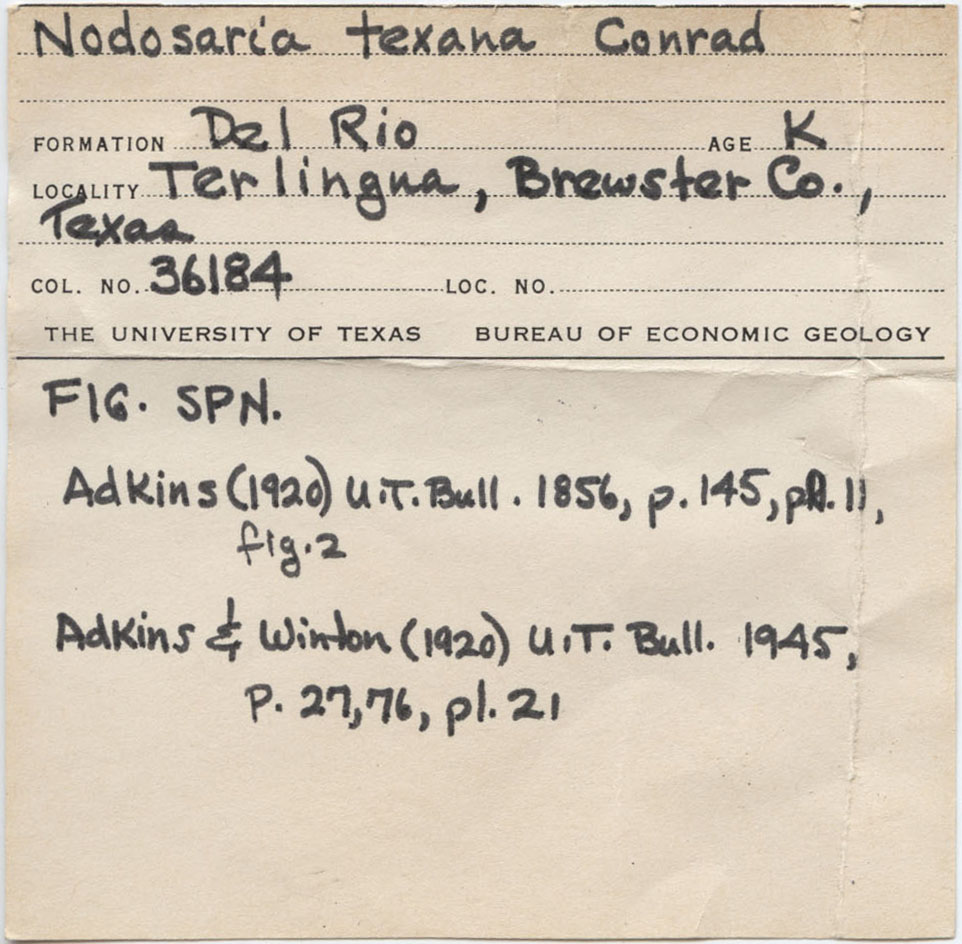 Nodosaria texana Conrad
FORMATION Del Rio AGE K
LOCALITY Terlingua, Brewster Co.,
Texas
COL. NO. 36184 LOC. NO.
THE UNIVERSITY OF TEXAS BUREAU OF ECONOMIC GEOLOGY
FIG. SPN.
Adkins (1920) U.T. Bull. 1856, p. 145, pl. 11,
fig. 2
Adkins & Winton (1920) U.T. Bull. 1945,
P. 27, 76, pl. 21